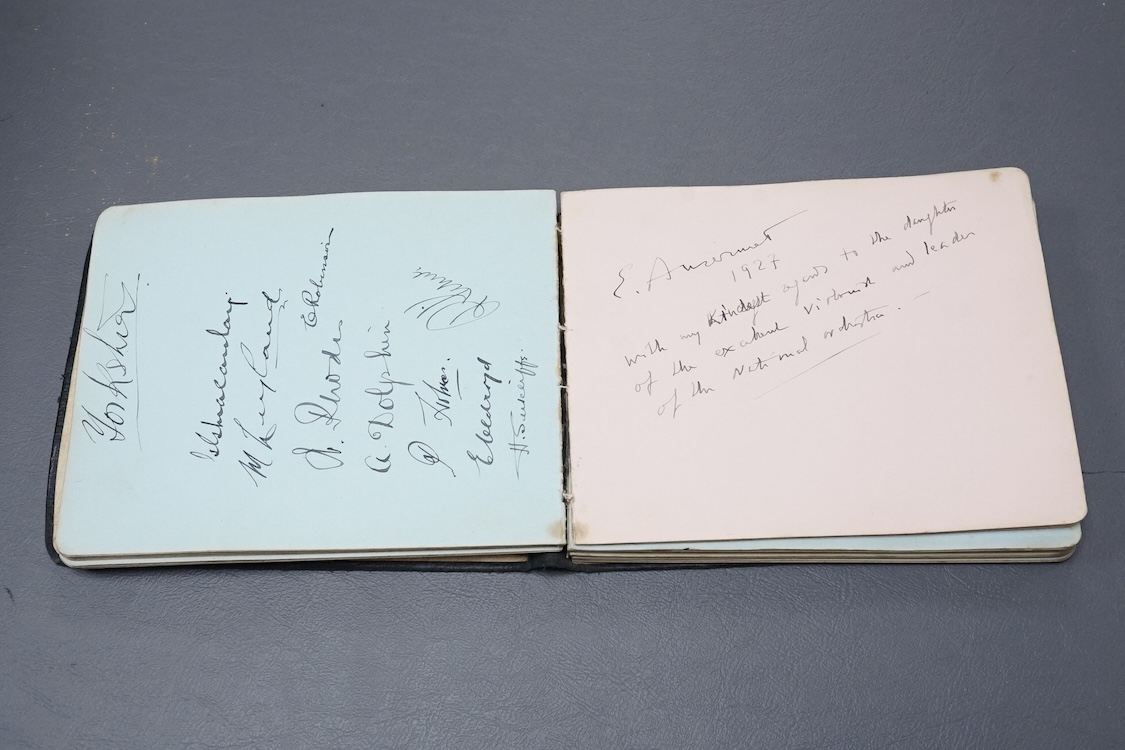 Yorkshire.
M Leyland.
W. Rhodes
E Robinson
A. Dolphin.
P Holmes.
E Oldroyd
H. Sutcliffe.
E. Ansermet
1927
with my kindest regards to the daughter
of the excellent violonist and leader
of the National orchestra.